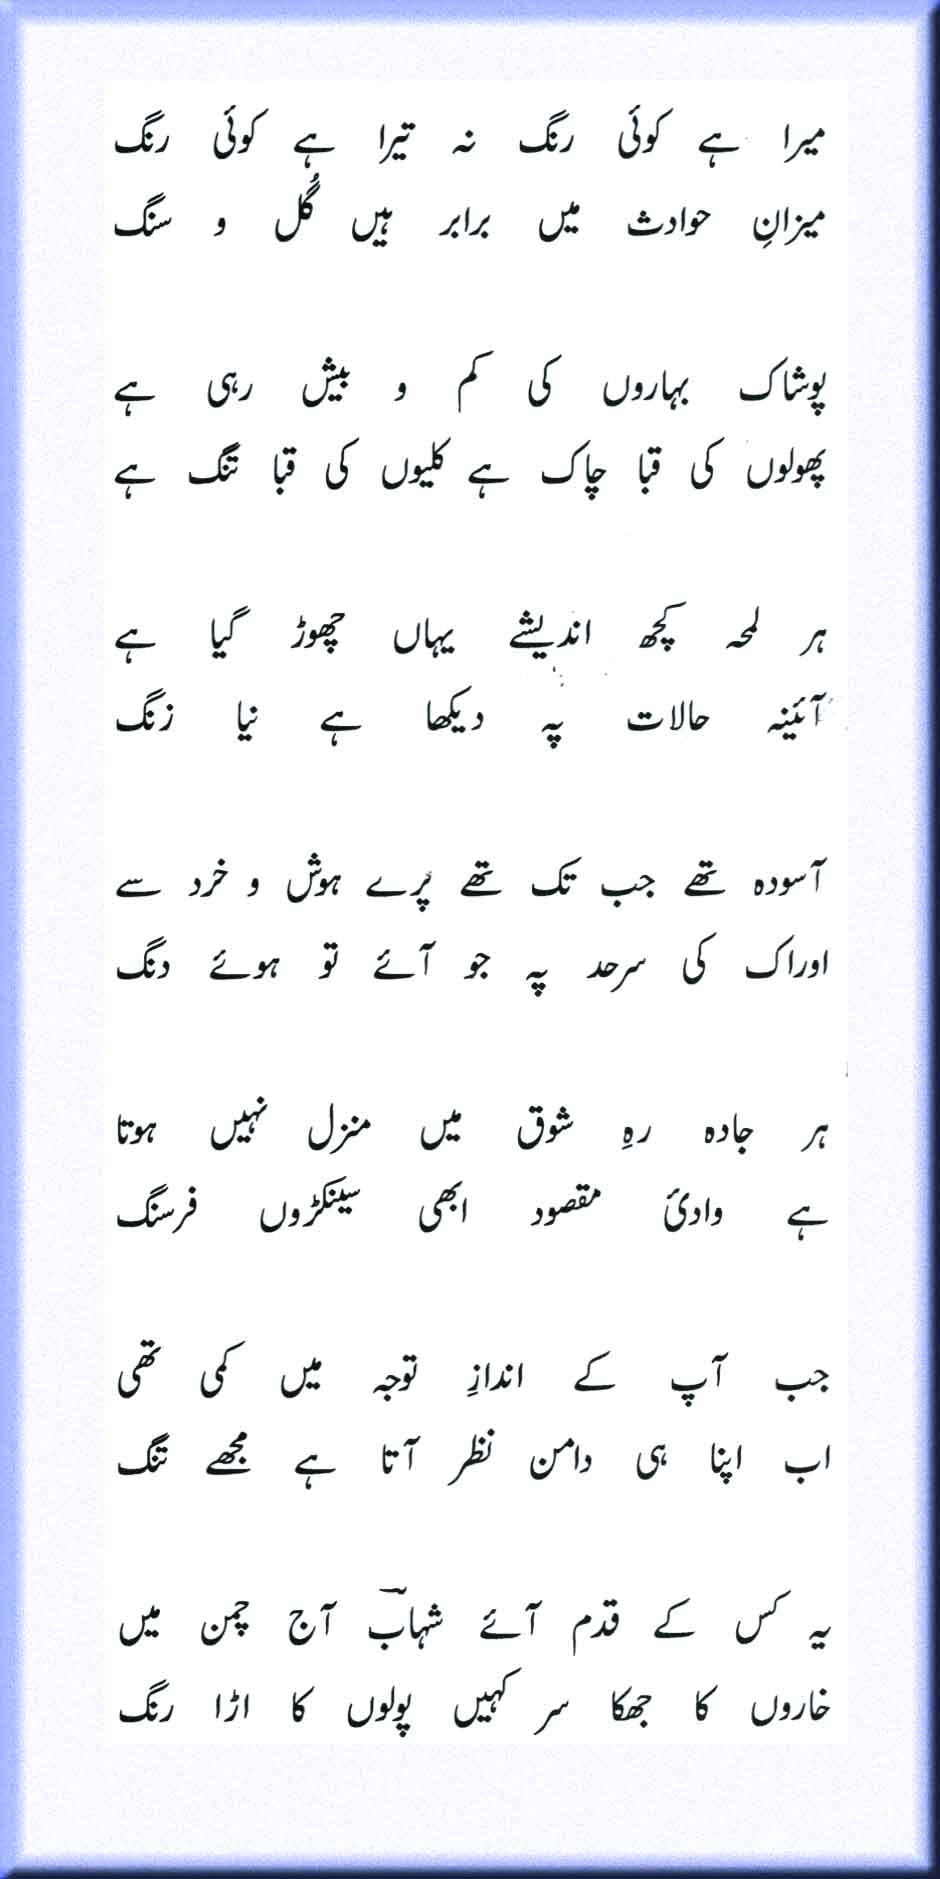 میرا ہے کوئی رنگ نہ تیرا ہے کوئی رنگ
میزانِ حوادث میں برابر ہیں گُل و سنگ
پوشاک بہاروں کی کم و بیش رہی ہے
پھولوں کی قبا چاک ہے کلیوں کی قبا تنگ ہے
ہر لمحہ کچھ اندیشے یہاں چھوڑ گیا ہے
آئینہ حالات پہ دیکھا ہے نیا زنگ
آسودہ تھے جب تک تھے پرے ہوش و خرد سے
اوراک کی سرحد پہ جو آئے تو ہوئے دنگ
ہر جادہ رہِ شوق میں منزل نہیں ہوتا
ہے وادیٔ مقصود ابھی سینکڑوں فرسنگ
جب آپ کے اندازِ توجہ میں کمی تھی
اب اپنا ہی دامن نظر آتا ہے مجھے تنگ
یہ کس کے قدم آئے شہابؔ آج چمن میں
خاروں کا جھکا سر کہیں پولوں کا اڑا رنگ